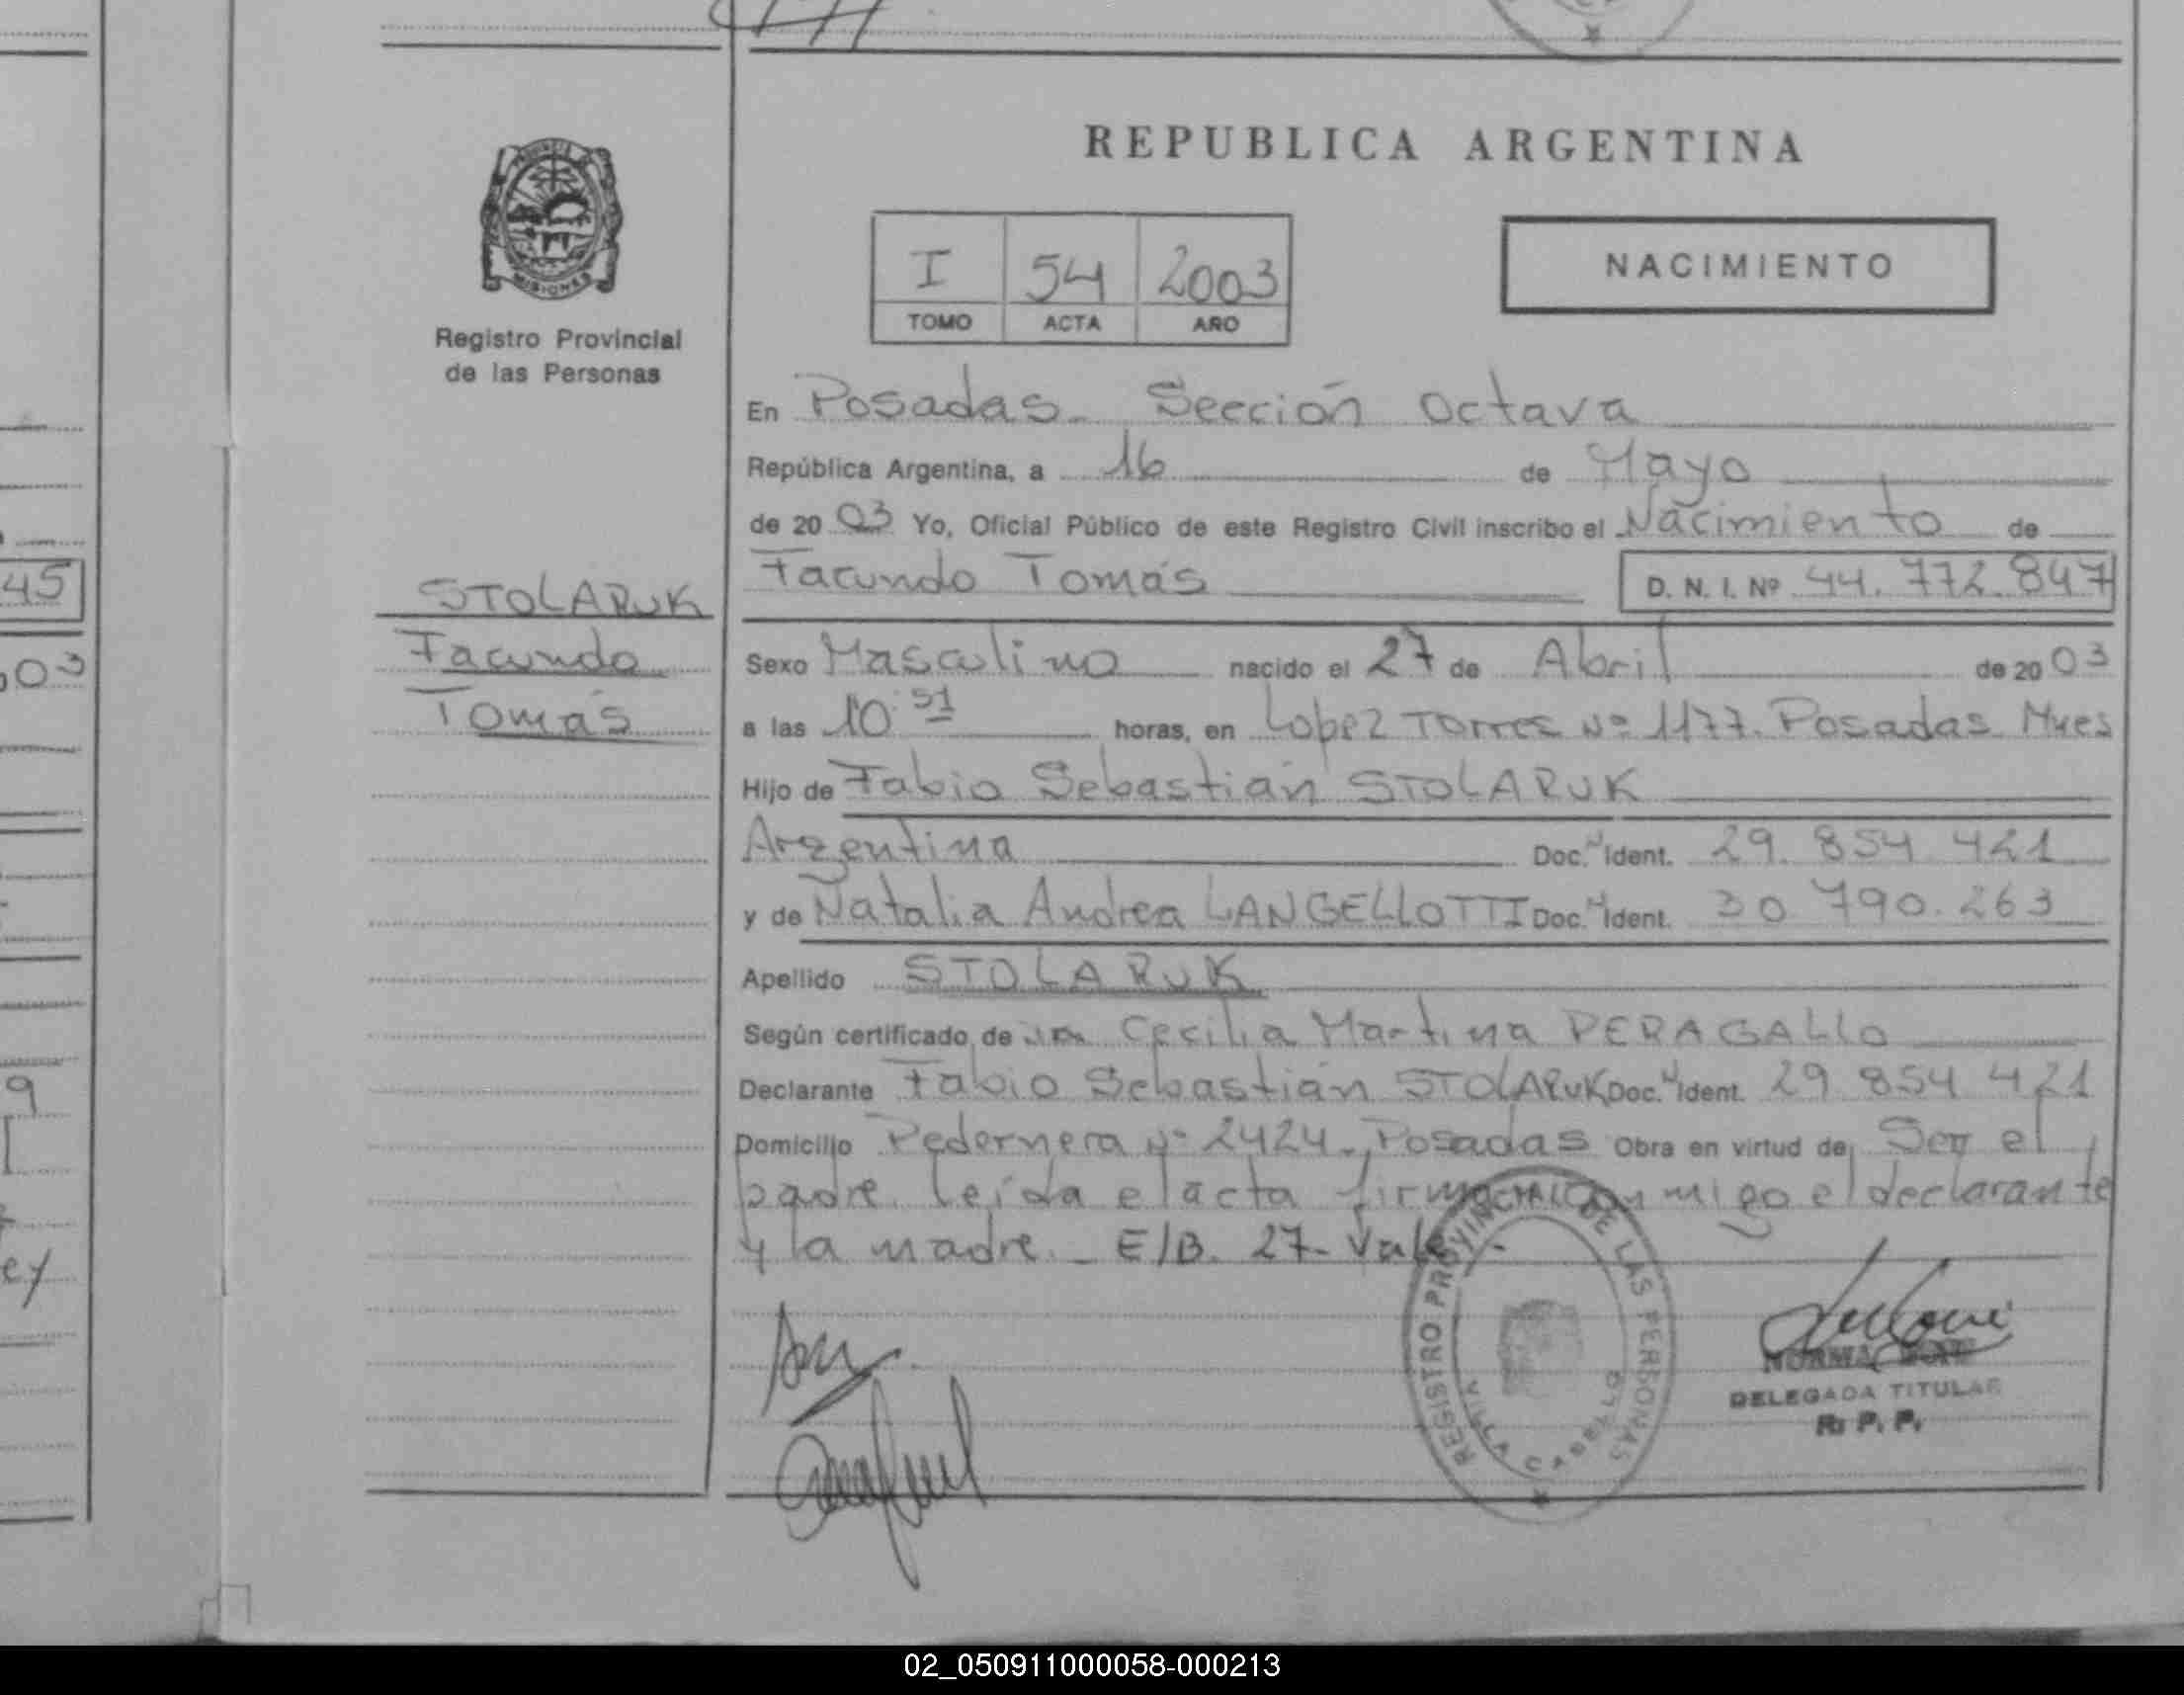 REPUBLICA ARGENTINA
PROVINCIA DE
MISIONES
Registro Provincial
de las Personas
I 54 2003
TOMO ACTA AÑO
NACIMIENTO
En Posadas. Sección Octava
República Argentina, a 16 de Mayo
de 20 03 Yo, Oficial Público de este Registro Civil inscribo el Nacimiento de
Facundo Tomás D. N. I. Nº 44.772.847
STOLARUK
Facundo
Tomás
Sexo Masculino nacido el 27 de Abril de 20 03
a las 10:51 horas, en Lopez Torres Nº 1177. Posadas Mnes
Hijo de Fabio Sebastián STOLARUK
Argentina Doc. Ident. 29.854.421
y de Natalia Andrea LANGELLOTTI Doc. Ident. 30.790.263
Apellido STOLARUK
Según certificado de Cecilia Martina PERAGALLO
Declarante Fabio Sebastián STOLARUK Doc. Ident. 29.854.421
Domicilio Pedernera Nº 2424. Posadas Obra en virtud de Ser el
padre. Leída el acta firma conmigo el declarante
y la madre. - E/B. 27- Vale.-
REGISTRO PROVINCIAL DE LAS PERSONAS
VILLA CABELLO
NORMA
DELEGADA TITULAR
R. P. P.
45
03
9
ey
02_050911000058-000213